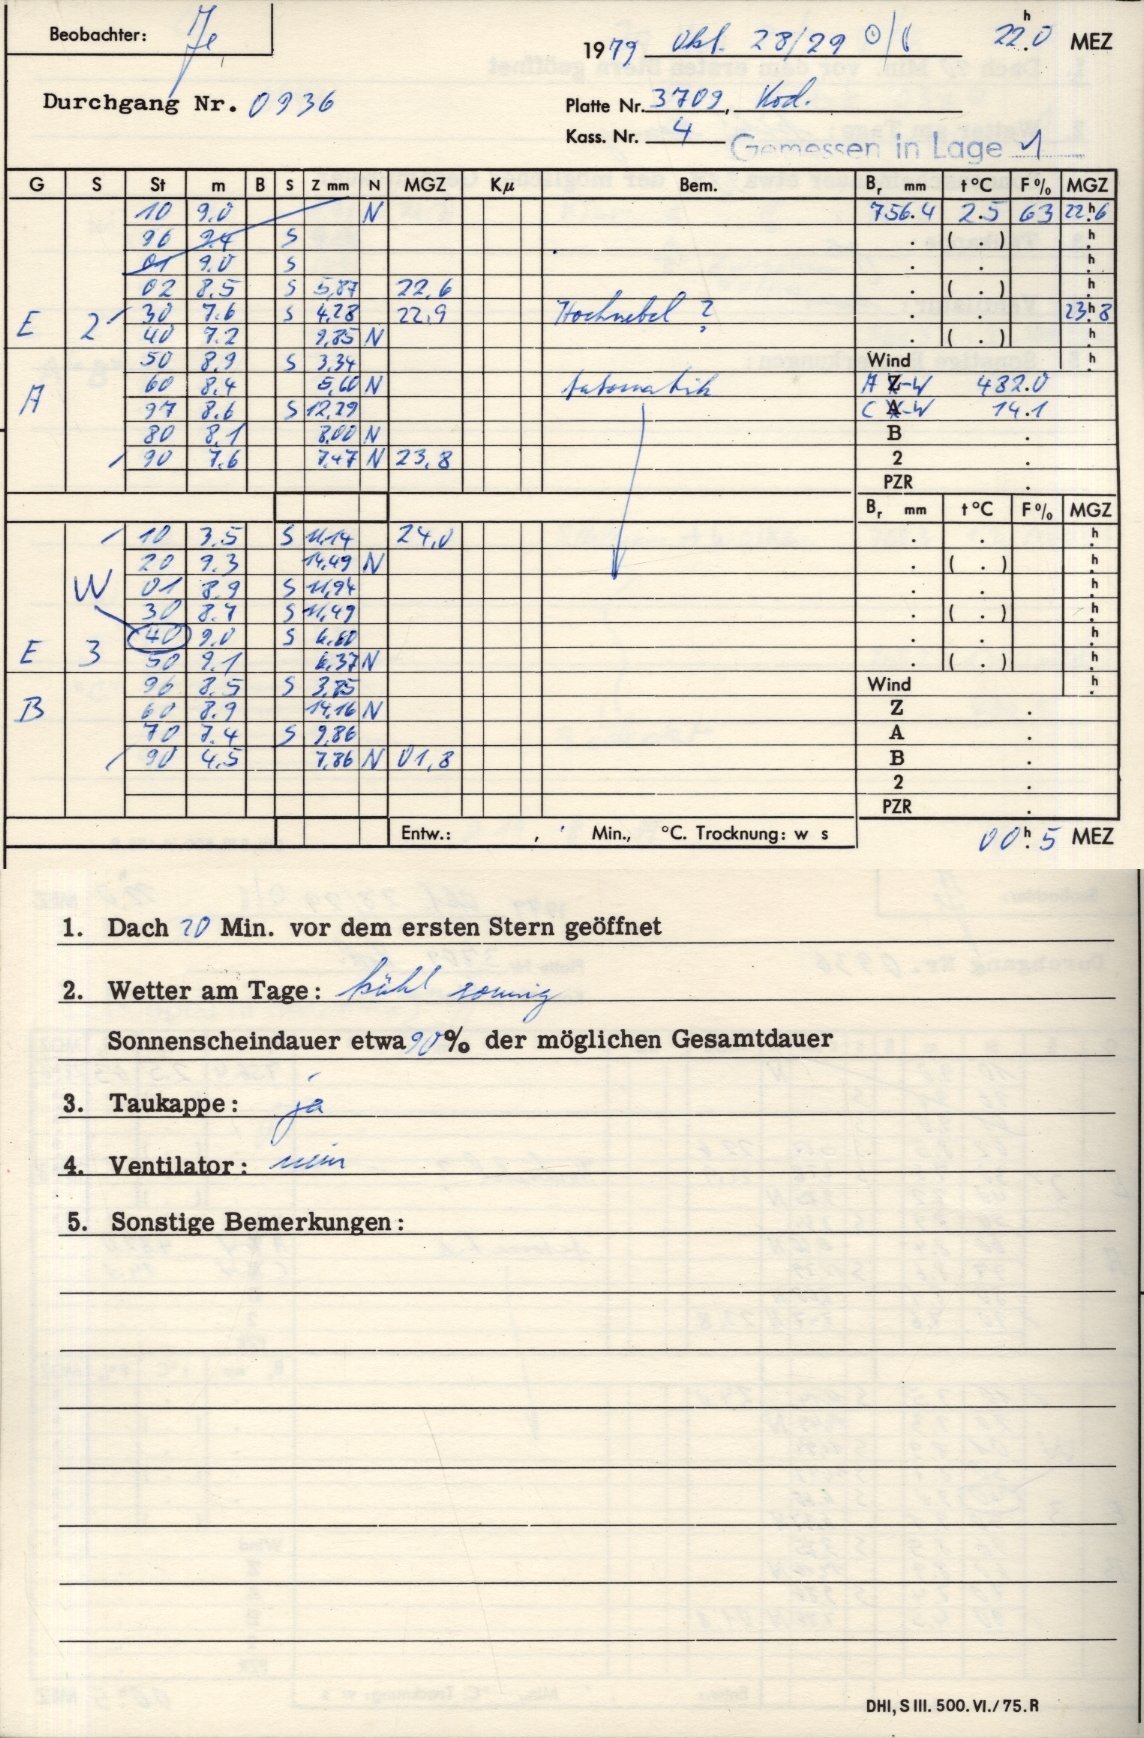 Beobachter: Je
1979 Okt. 28/29 22h.0 MEZ
Durchgang Nr. 0936
Platte Nr. 3709, Kod.
Kass. Nr. 4
Gemessen in Lage 1
G S St m B S Z mm N MGZ Kμ Bem. Br mm t°C F% MGZ
10 9.0 N 756.4 2.5 63 22h.6
96 9.4 S . ( . ) h.
01 9.0 S . . h.
02 8.5 S 5,87 22,6 . ( . ) h.
E 2 30 7.6 S 4,28 22,9 Hochnebel ? . . 23h.8
40 7.2 9,85 N . ( . ) h.
50 8.9 S 3,34 Wind h.
A 60 8.4 5,60 N Automatik A Z-W 482.0
97 8.6 S 12,29 C A-W 14.1
80 8,1 8,00 N B .
90 7.6 7,47 N 23,8 2 .
PZR .
Br mm t°C F% MGZ
10 3.5 S 11,14 24,0 . . h.
20 9.3 14,49 N . ( . ) h.
W 01 8.9 S 11,94 . . h.
30 8.7 S 11,49 . ( . ) h.
40 9.0 S 6,60 . . h.
E 3 50 9.1 6,37 N . ( . ) h.
96 8.5 S 3,85 Wind h.
B 60 8.9 14,16 N Z .
70 7.4 S 9,86 A .
90 4.5 7,86 N 01,8 B .
2 .
PZR .
Entw.: , Min., °C. Trocknung: w s 00h.5 MEZ
1. Dach 20 Min. vor dem ersten Stern geöffnet
2. Wetter am Tage: kühl sonnig
Sonnenscheindauer etwa 90% der möglichen Gesamtdauer
3. Taukappe: ja
4. Ventilator: nein
5. Sonstige Bemerkungen:
DHI, S III. 500. VI./75. R